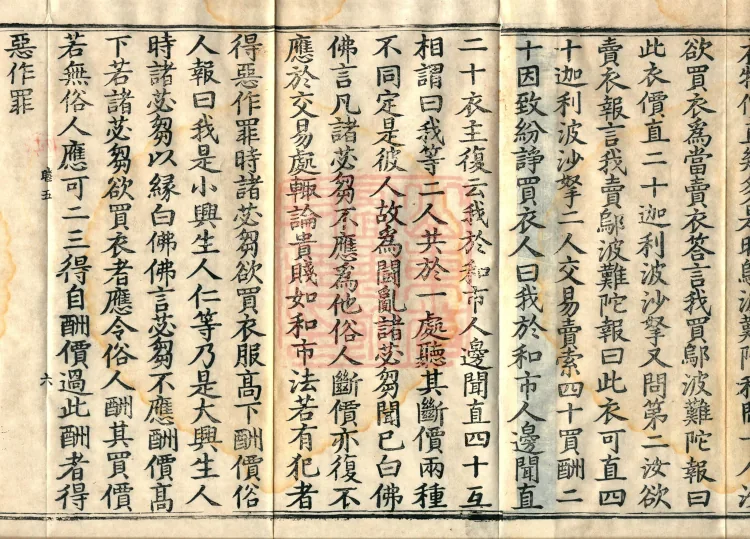 鄔波難陀
欲買衣為當賣衣荅言我買鄔波難陀報曰
此衣價直二十迦利波沙拏又問第二汝欲
賣衣報言我賣鄔波難陀報曰此衣可直四
十迦利波沙拏二人交易賣索四十買酬二
十因致紛諍買衣人曰我於和市人邊聞直
二十衣主復云我於和市人邊聞直四十互
相謂曰我等二人共於一處聽其斷價兩種
不同定是彼人故為鬪亂諸苾芻聞已白佛
佛言凡諸苾芻不應為他俗人斷價亦復不
應於交易處輙論貴賤如和市法若有犯者
得惡作罪時諸苾芻欲買衣服高下酬價俗
人報曰我是小興生人仁等乃是大興生人
時諸苾芻以緣白佛佛言苾芻不應酬價高
下若諸苾芻欲買衣者應令俗人酬其買價
若無俗人應可二三得自酬價過此酬者得
五 六
惡作罪